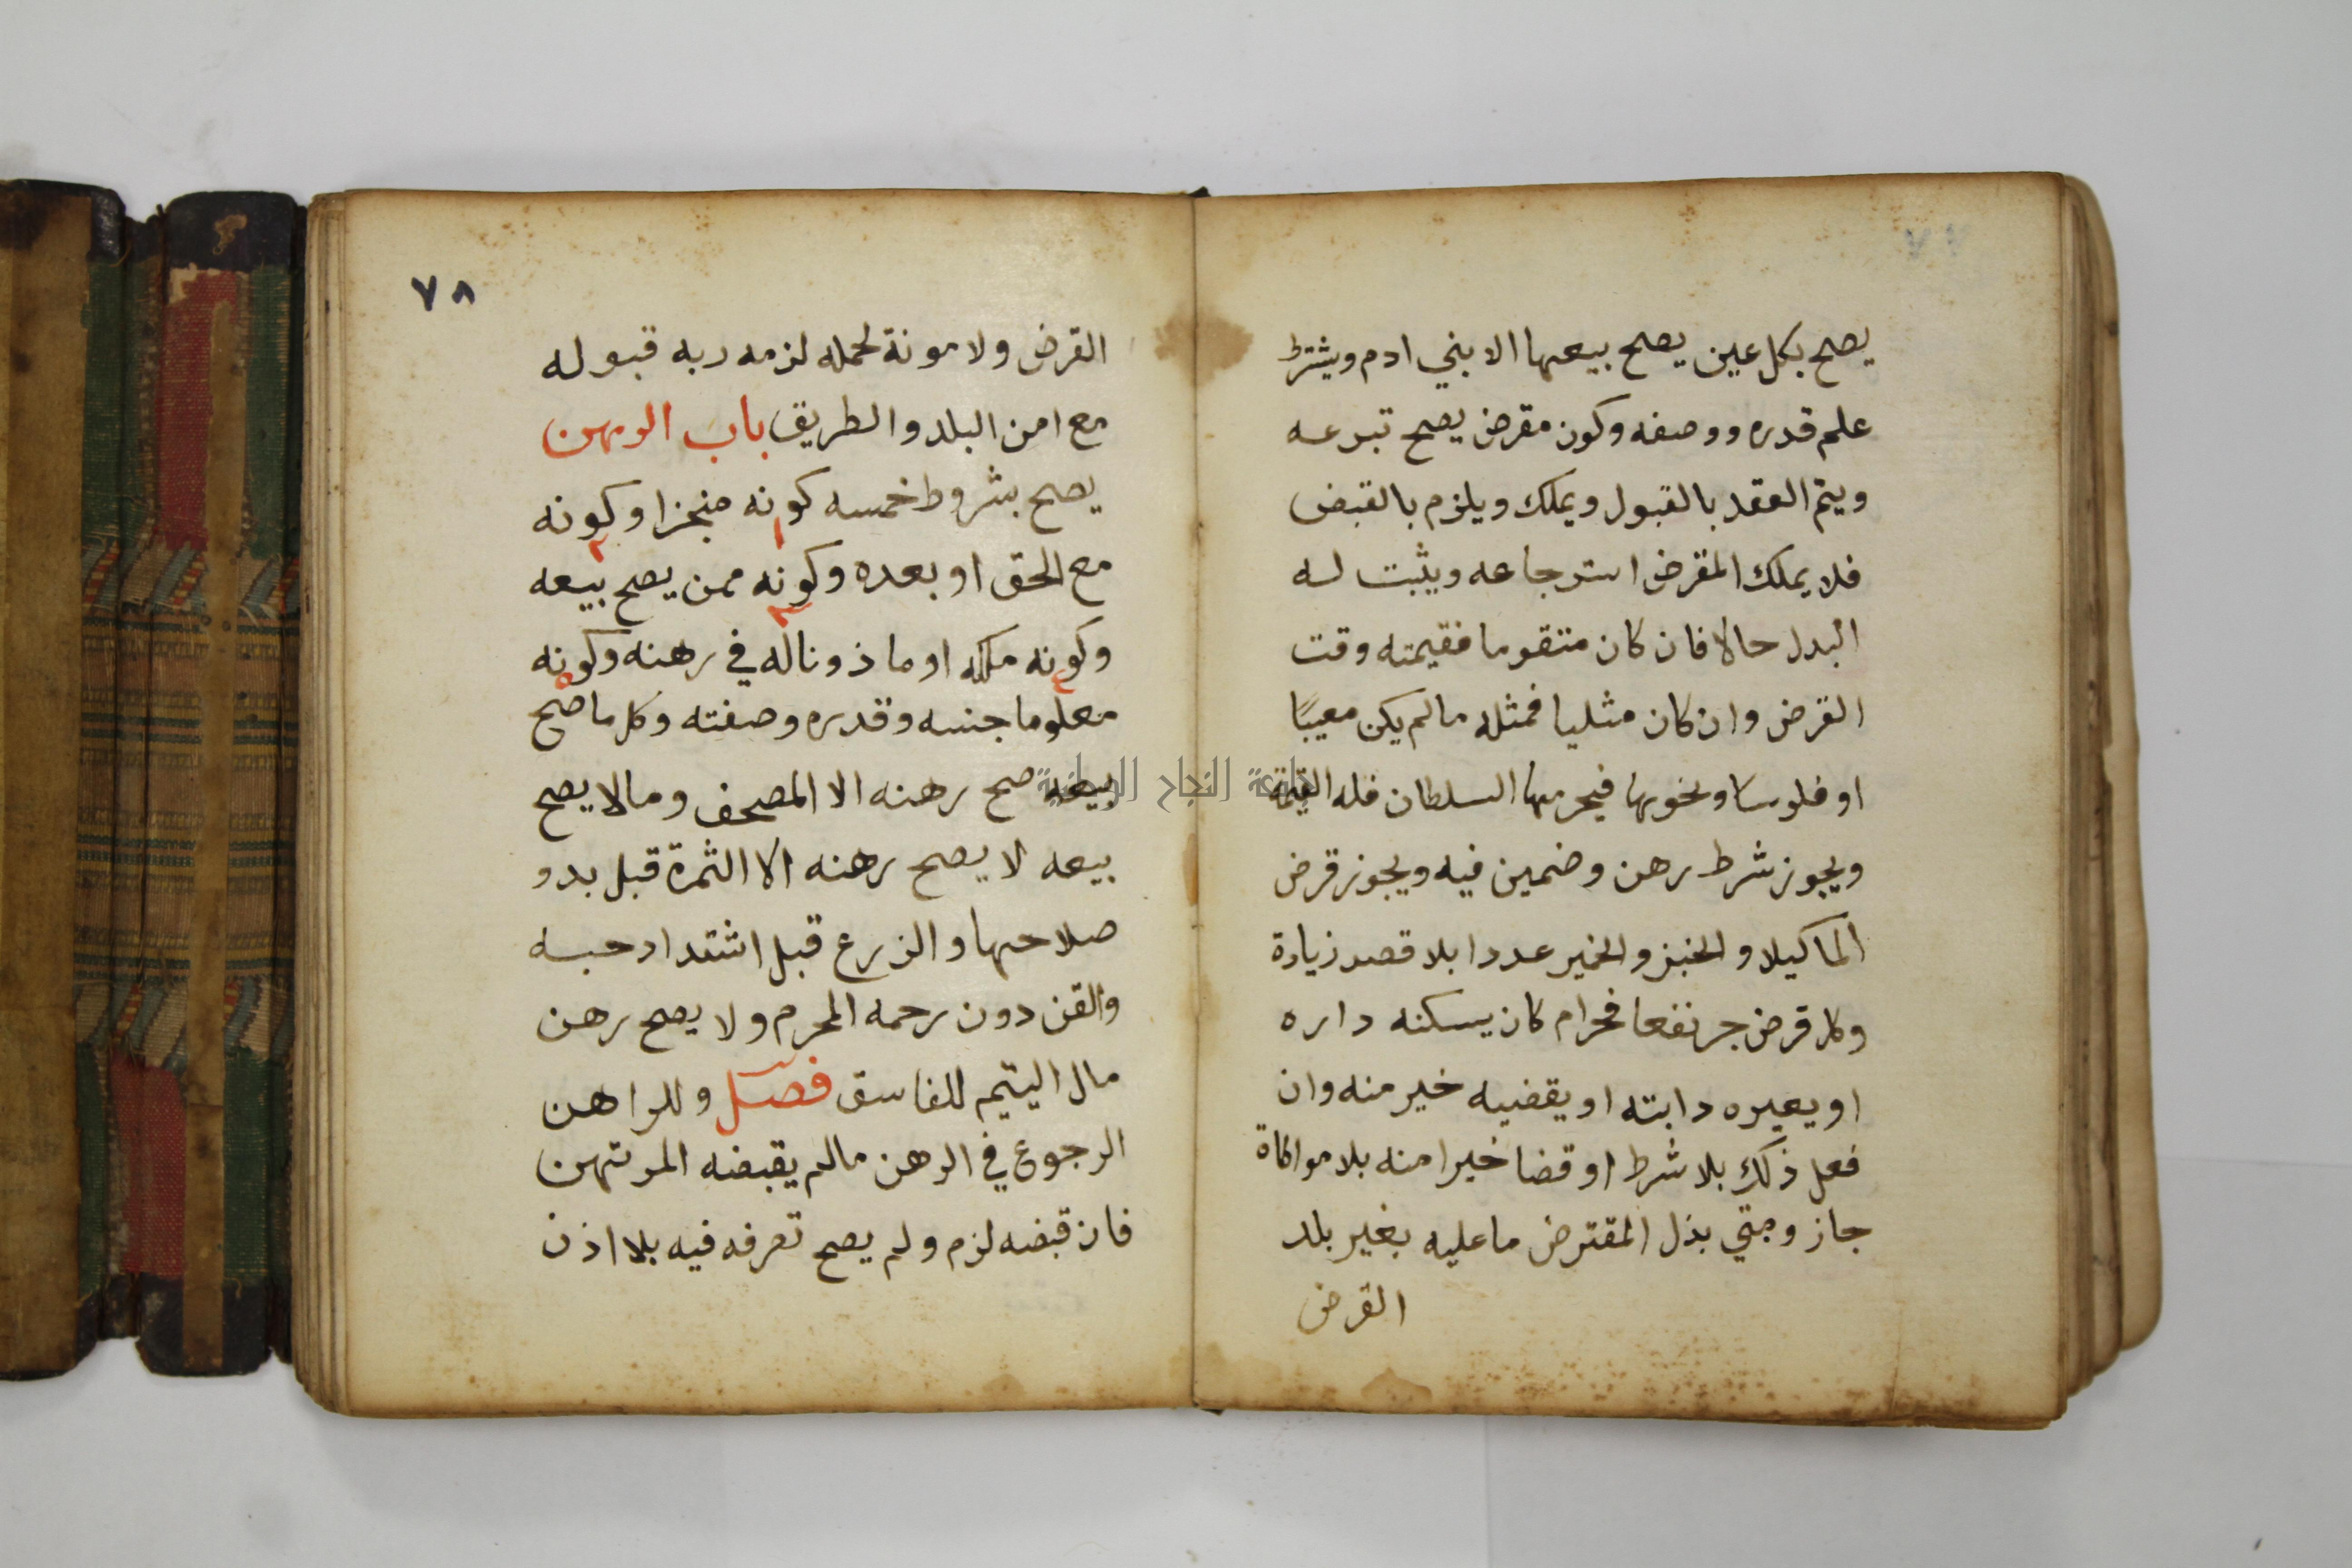 ٧٧
يصح بكل عين يصح بيعها الا بني ادم ويشترط
علم قدره ووصفه وكون مقرض يصح تبرعه
ويتم العقد بالقبول ويملك ويلزم بالقبض
فلا يملك المقرض استرجاعه ويثبت له
البدل حالا فان كان متقوما فقيمته وقت
القرض وان كان مثليا فمثله مالم يكن معيبًا
او فلوسا ونحوها فيحرمها السلطان فله القيمة
ويجوز شرط رهن وضمين فيه ويجوز قرض
الما كيلا والخبز والخمير عددا بلا قصد زيادة
وكل قرض جر نفعا فحرام كان يسكنه داره
او يعيره دابته او يقضيه خير منه وان
فعل ذلك بلا شرط او قضا خيرا منه بلا مواطاة
جاز ومتي بذل المقترض ما عليه بغير بلد
القرض
٧٨
القرض ولا مونة لحمله لزمه ربه قبوله
مع امن البلد والطريق باب الرهن
يصح بشروط خمسه كونه منجزا وكونه
١ ٢
مع الحق او بعده وكونه ممن يصح بيعه
٣
وكونه ملكه او ماذونا له في رهنه وكونه
٤ ٥
معلوما جنسه وقدره وصفته وكل ما صح
بيعه صح رهنه الا المصحف ومالا يصح
بيعه لا يصح رهنه الا الثمرة قبل بدو
صلاحها والزرع قبل اشتداد حبه
والقن دون رحمه المحرم ولا يصح رهن
مال اليتيم للفاسق فصل وللراهن
الرجوع في الرهن مالم يقبضه المرتهن
فان قبضه لزم ولم يصح تصرفه فيه بلا اذن
جامعة النجاح الوطنية